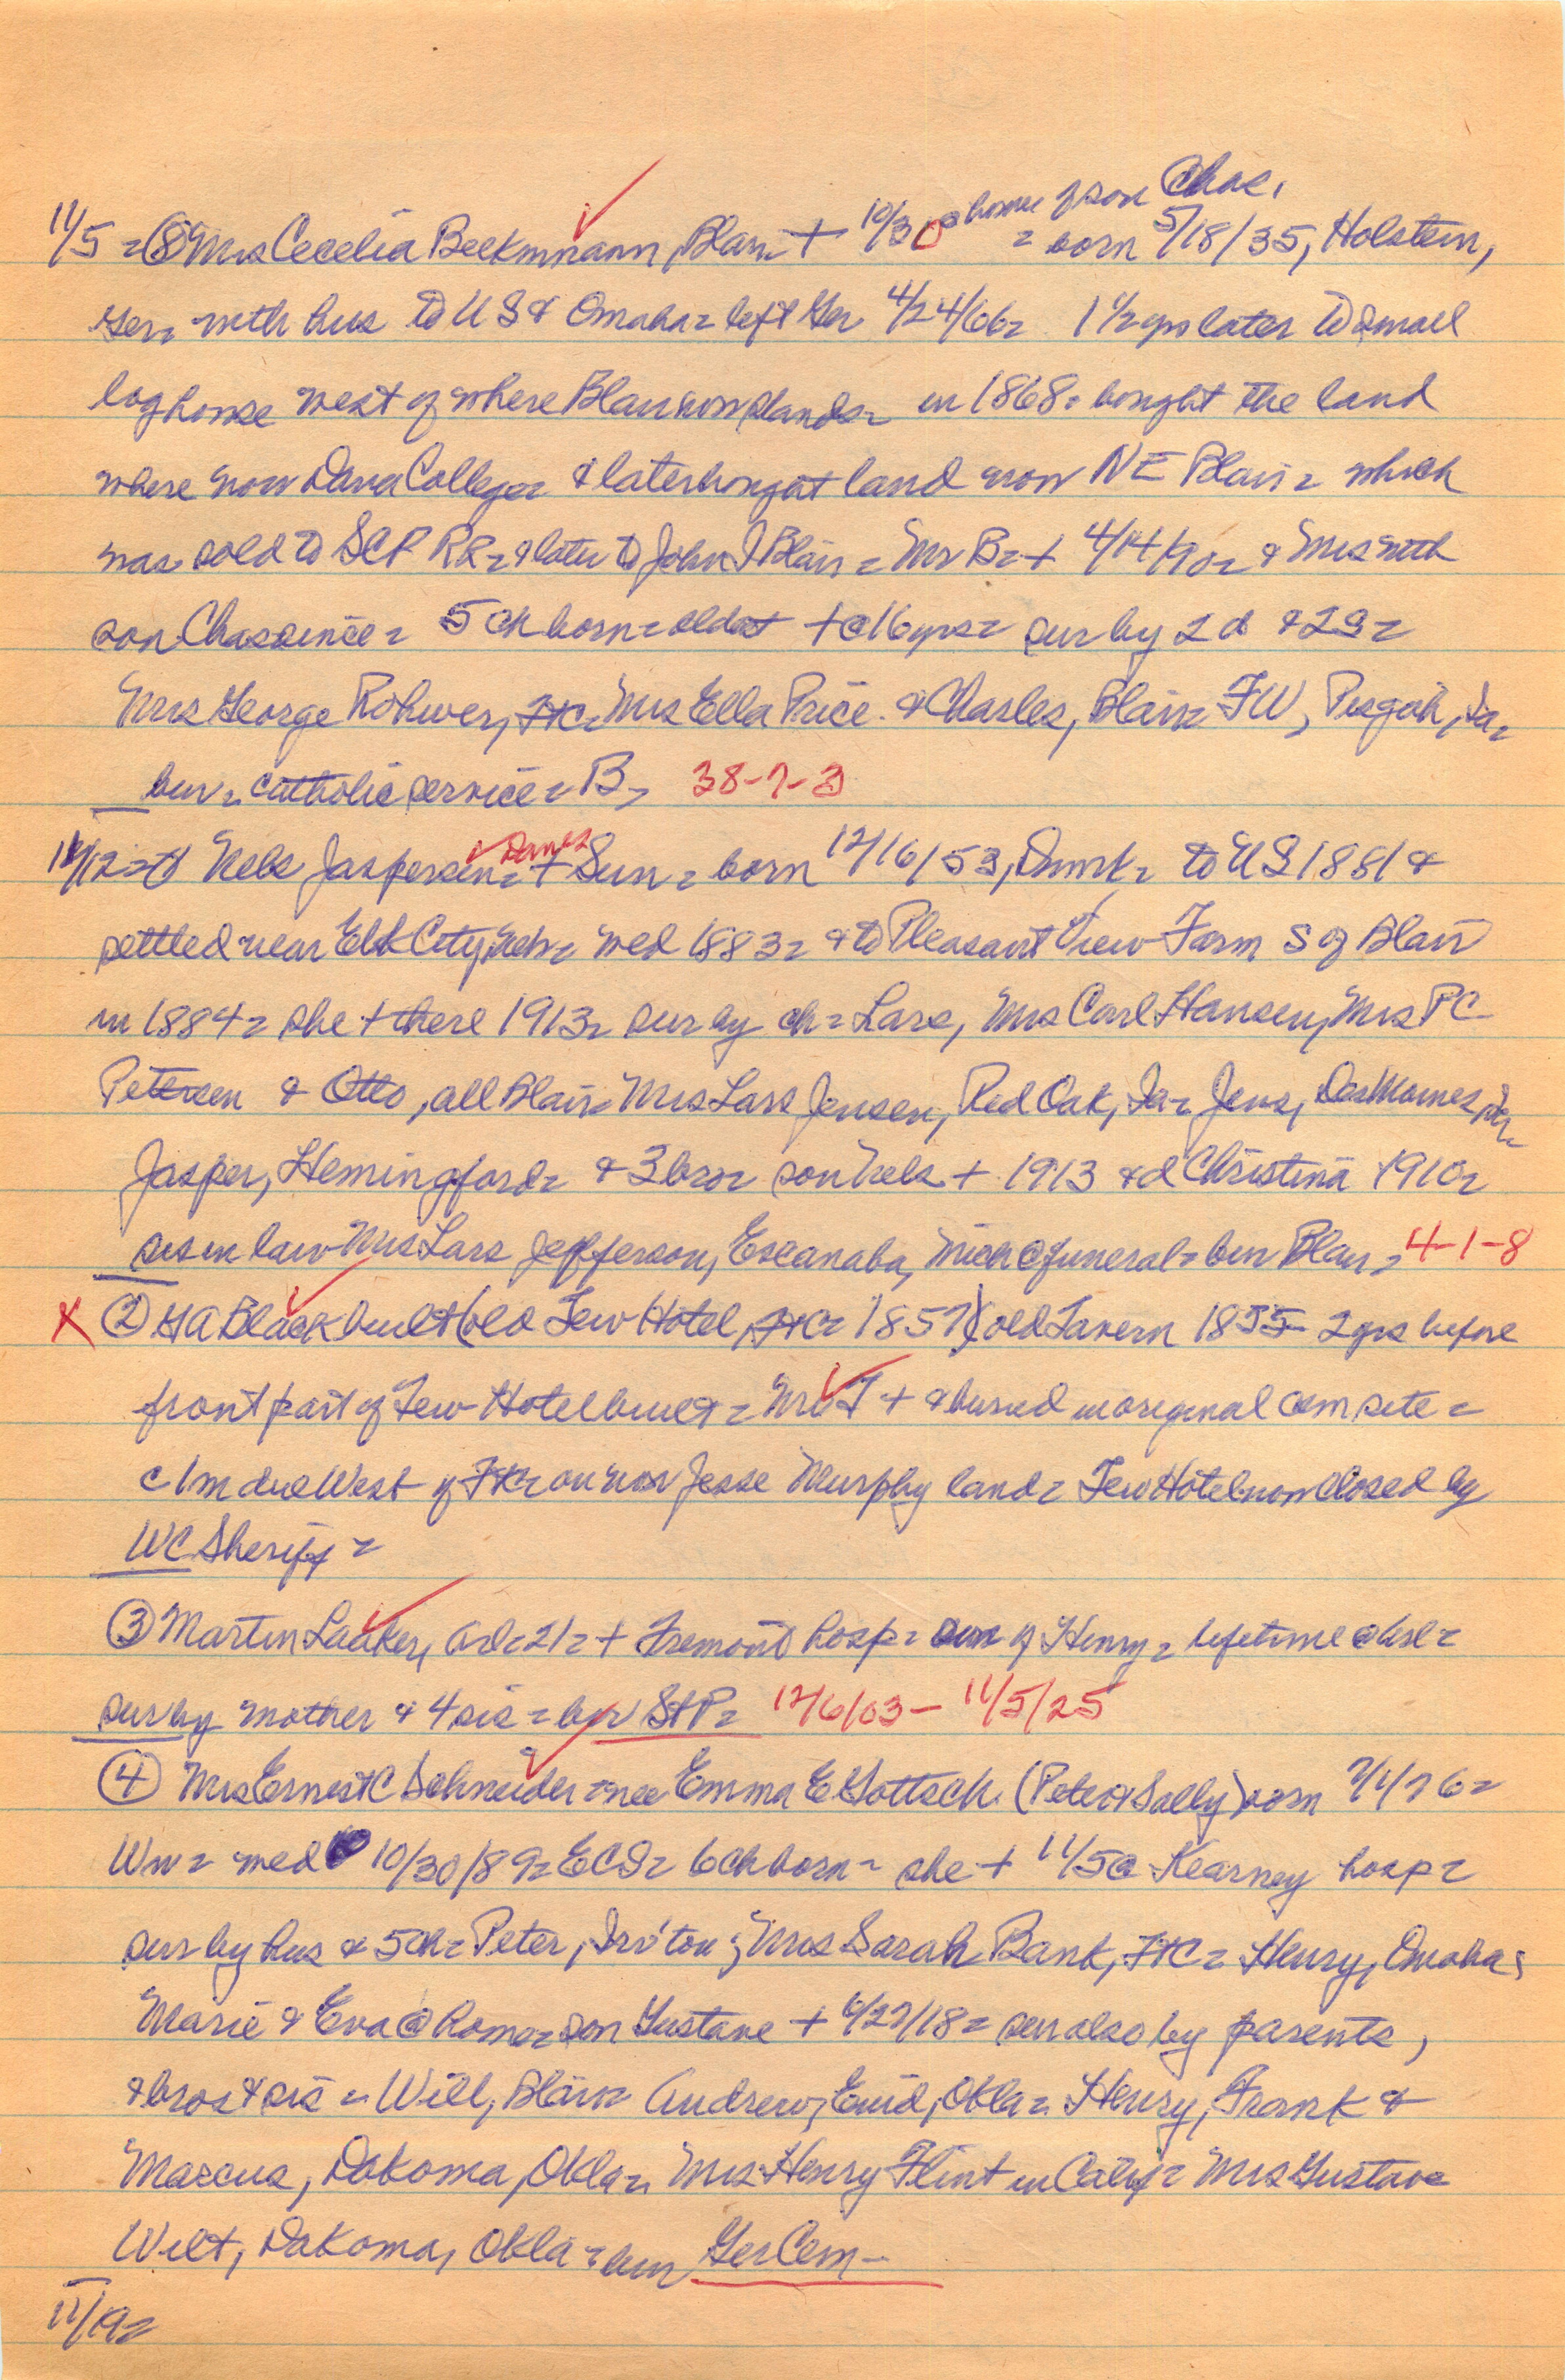 @ home of son Chas.
11/5 = ⑧ Mrs Cecelia Beekmann, Blair + 10/30 = born 5/18/35, Holstein,
Ger = with hus to US & Omaha = left Ger 4/24/66 = 1 1/2 yrs later to small
log house west of where Blair now stands = in 1868 = bought the land
where now Dana College = & later bought land now NE Blair = which
was sold to SCP RR = & later to John I Blair = Mr B = + 4/14/90 = & Mrs with
son Chas since = 5 ch born = oldest + @ 16 yrs = sur by 2 d & 2 s =
Mrs George Rohwer, FtC = Mrs Ella Price & Charles, Blair = FW, Pisgah, Ia =
bur = catholic service = B = 38-7-3
11/12 = Nels Jaspersen = Danes + Sun = born 12/16/53, Dnmk = to US 1881 &
settled near Elk City, Neb = wed 1883 = & to Pleasant View Farm S of Blair
in 1884 = she + there 1913 = sur by ch = Lars, Mrs Carl Hansen, Mrs PC
Petersen & Otto, all Blair = Mrs Lars Jensen, Red Oak, Ia = Jens, Des Moines, Ia =
Jasper, Hemingford = & 3 bro = son Nels + 1913 & d Christina 1910 =
sis in law Mrs Lars Jefferson, Escanaba, Mich @ funeral = bur Blair = 4-1-8
X ② HA Black built (old Tew Hotel, FtC = 1857) (old Tavern 1855 2 yrs before
front part of Tew Hotel built = Mr T + & buried in original cem site =
c 1 m due West of FtC = on now Jesse Murphy land = Tew Hotel now closed by
WC Sheriff =
③ Martin Laaker, Arl = 21 = + Fremont hosp = son of Henry = lifetime @ Arl =
sur by mother & 4 sis = bur St P = 12/6/03 - 11/5/25
④ Mrs Ernest C Schneider = nee Emma E Gottsch (Peter & Sally) born 7/1/76 =
Wn = wed 10/30/89 = ECS = 6 ch born = she + 11/5 @ Kearney hosp =
sur by hus & 5 ch = Peter, Irv'ton; Mrs Sarah Bank, FtC = Henry, Omaha;
Marie & Eva @ home = son Gustave + 6/27/18 = sur also by parents,
& bros & sis = Will, Blair = Andrew, Enid, Okla = Henry, Frank &
Marcus, Dakoma, Okla = Mrs Henry Flint in Calif = Mrs Gustave
Wilt, Dakoma, Okla = bur Ger Cem -
11/19 =